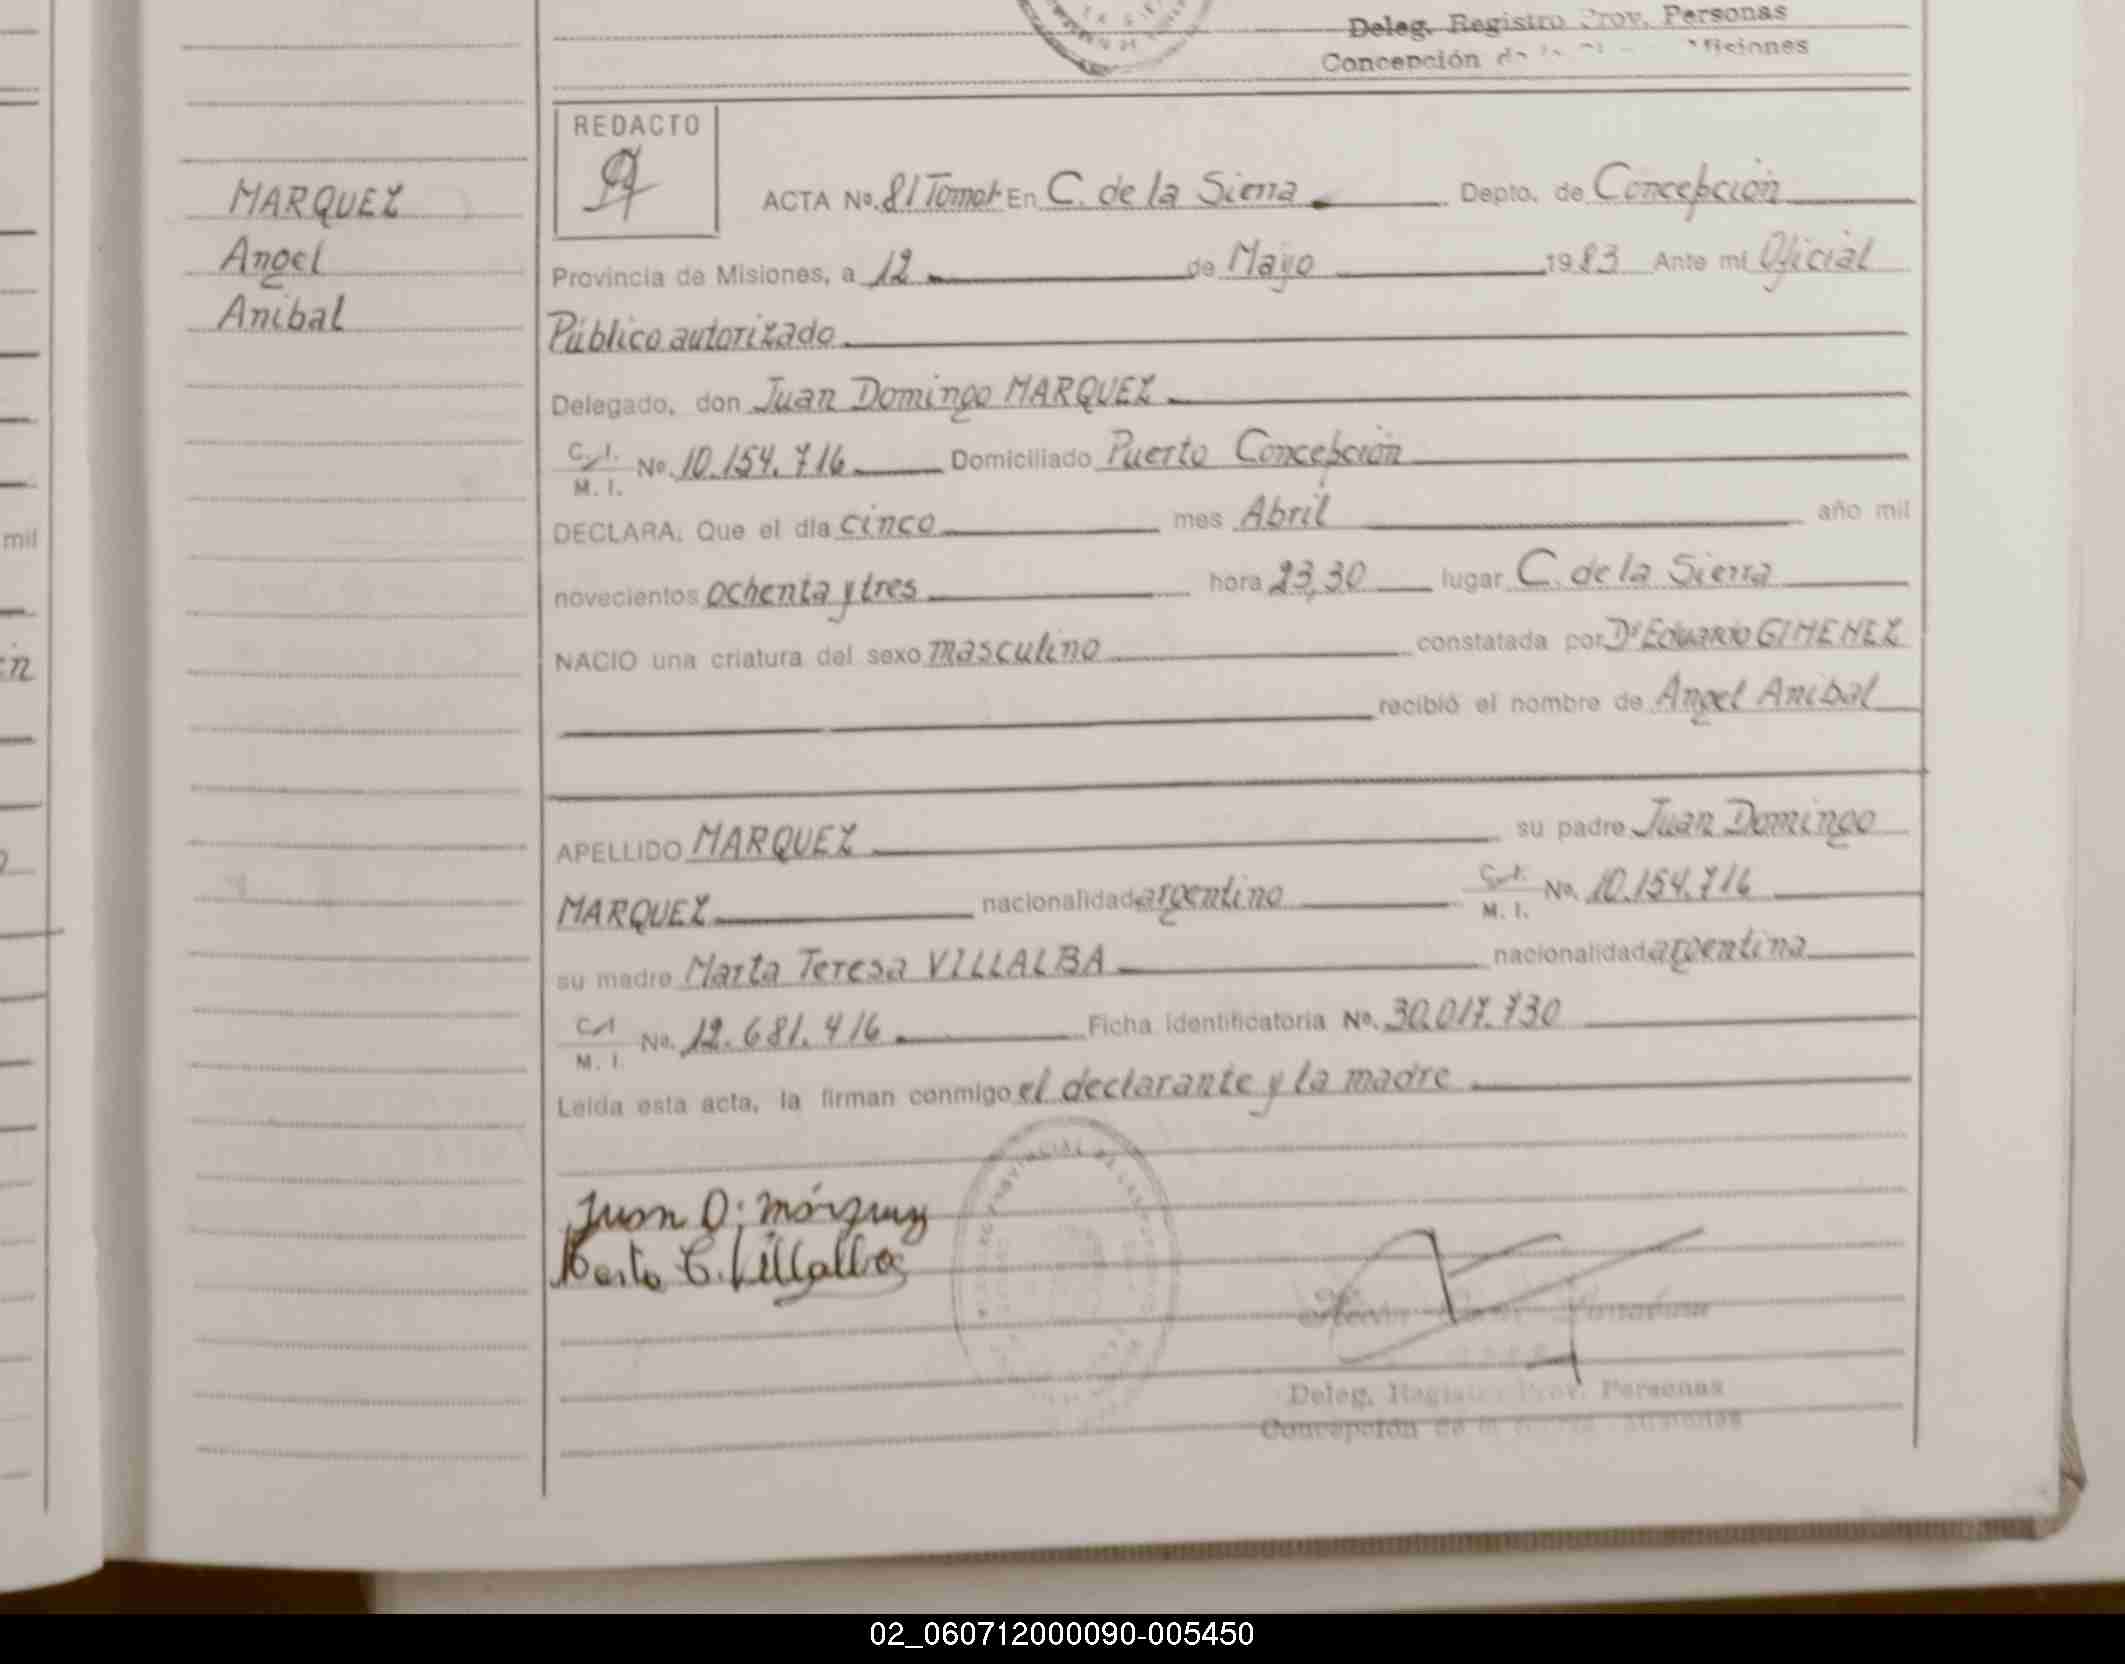 Deleg. Registro Prov. Personas
Concepción de la Misiones
MARQUEZ
Angel
Anibal
REDACTO
ACTA No. 81 Tomo I En C. de la Sierra Depto. de Concepción
Provincia de Misiones, a 12 de Mayo 1983 Ante mi Oficial
Público autorizado
Delegado, don Juan Domingo MARQUEZ
C. I.
M. I. No. 10.154.716 Domiciliado Puerto Concepción
DECLARA: Que el día cinco mes Abril año mil
novecientos ochenta y tres hora 23,30 lugar C. de la Sierra
NACIO una criatura del sexo masculino constatada por Dr Eduardo GIMENEZ
recibió el nombre de Angel Anibal
APELLIDO MARQUEZ su padre Juan Domingo
MARQUEZ nacionalidad argentino C. I.
M. I. No. 10.154.716
su madre Marta Teresa VILLALBA nacionalidad argentina
C. I.
M. I. No. 12.681.416 Ficha identificatoria No. 30.017.730
Leída esta acta, la firman conmigo el declarante y la madre
Juan D. Márquez
Marta T. Villalba
Deleg. Registro Prov. Personas
Concepción de la Misiones
mil
02_060712000090-005450